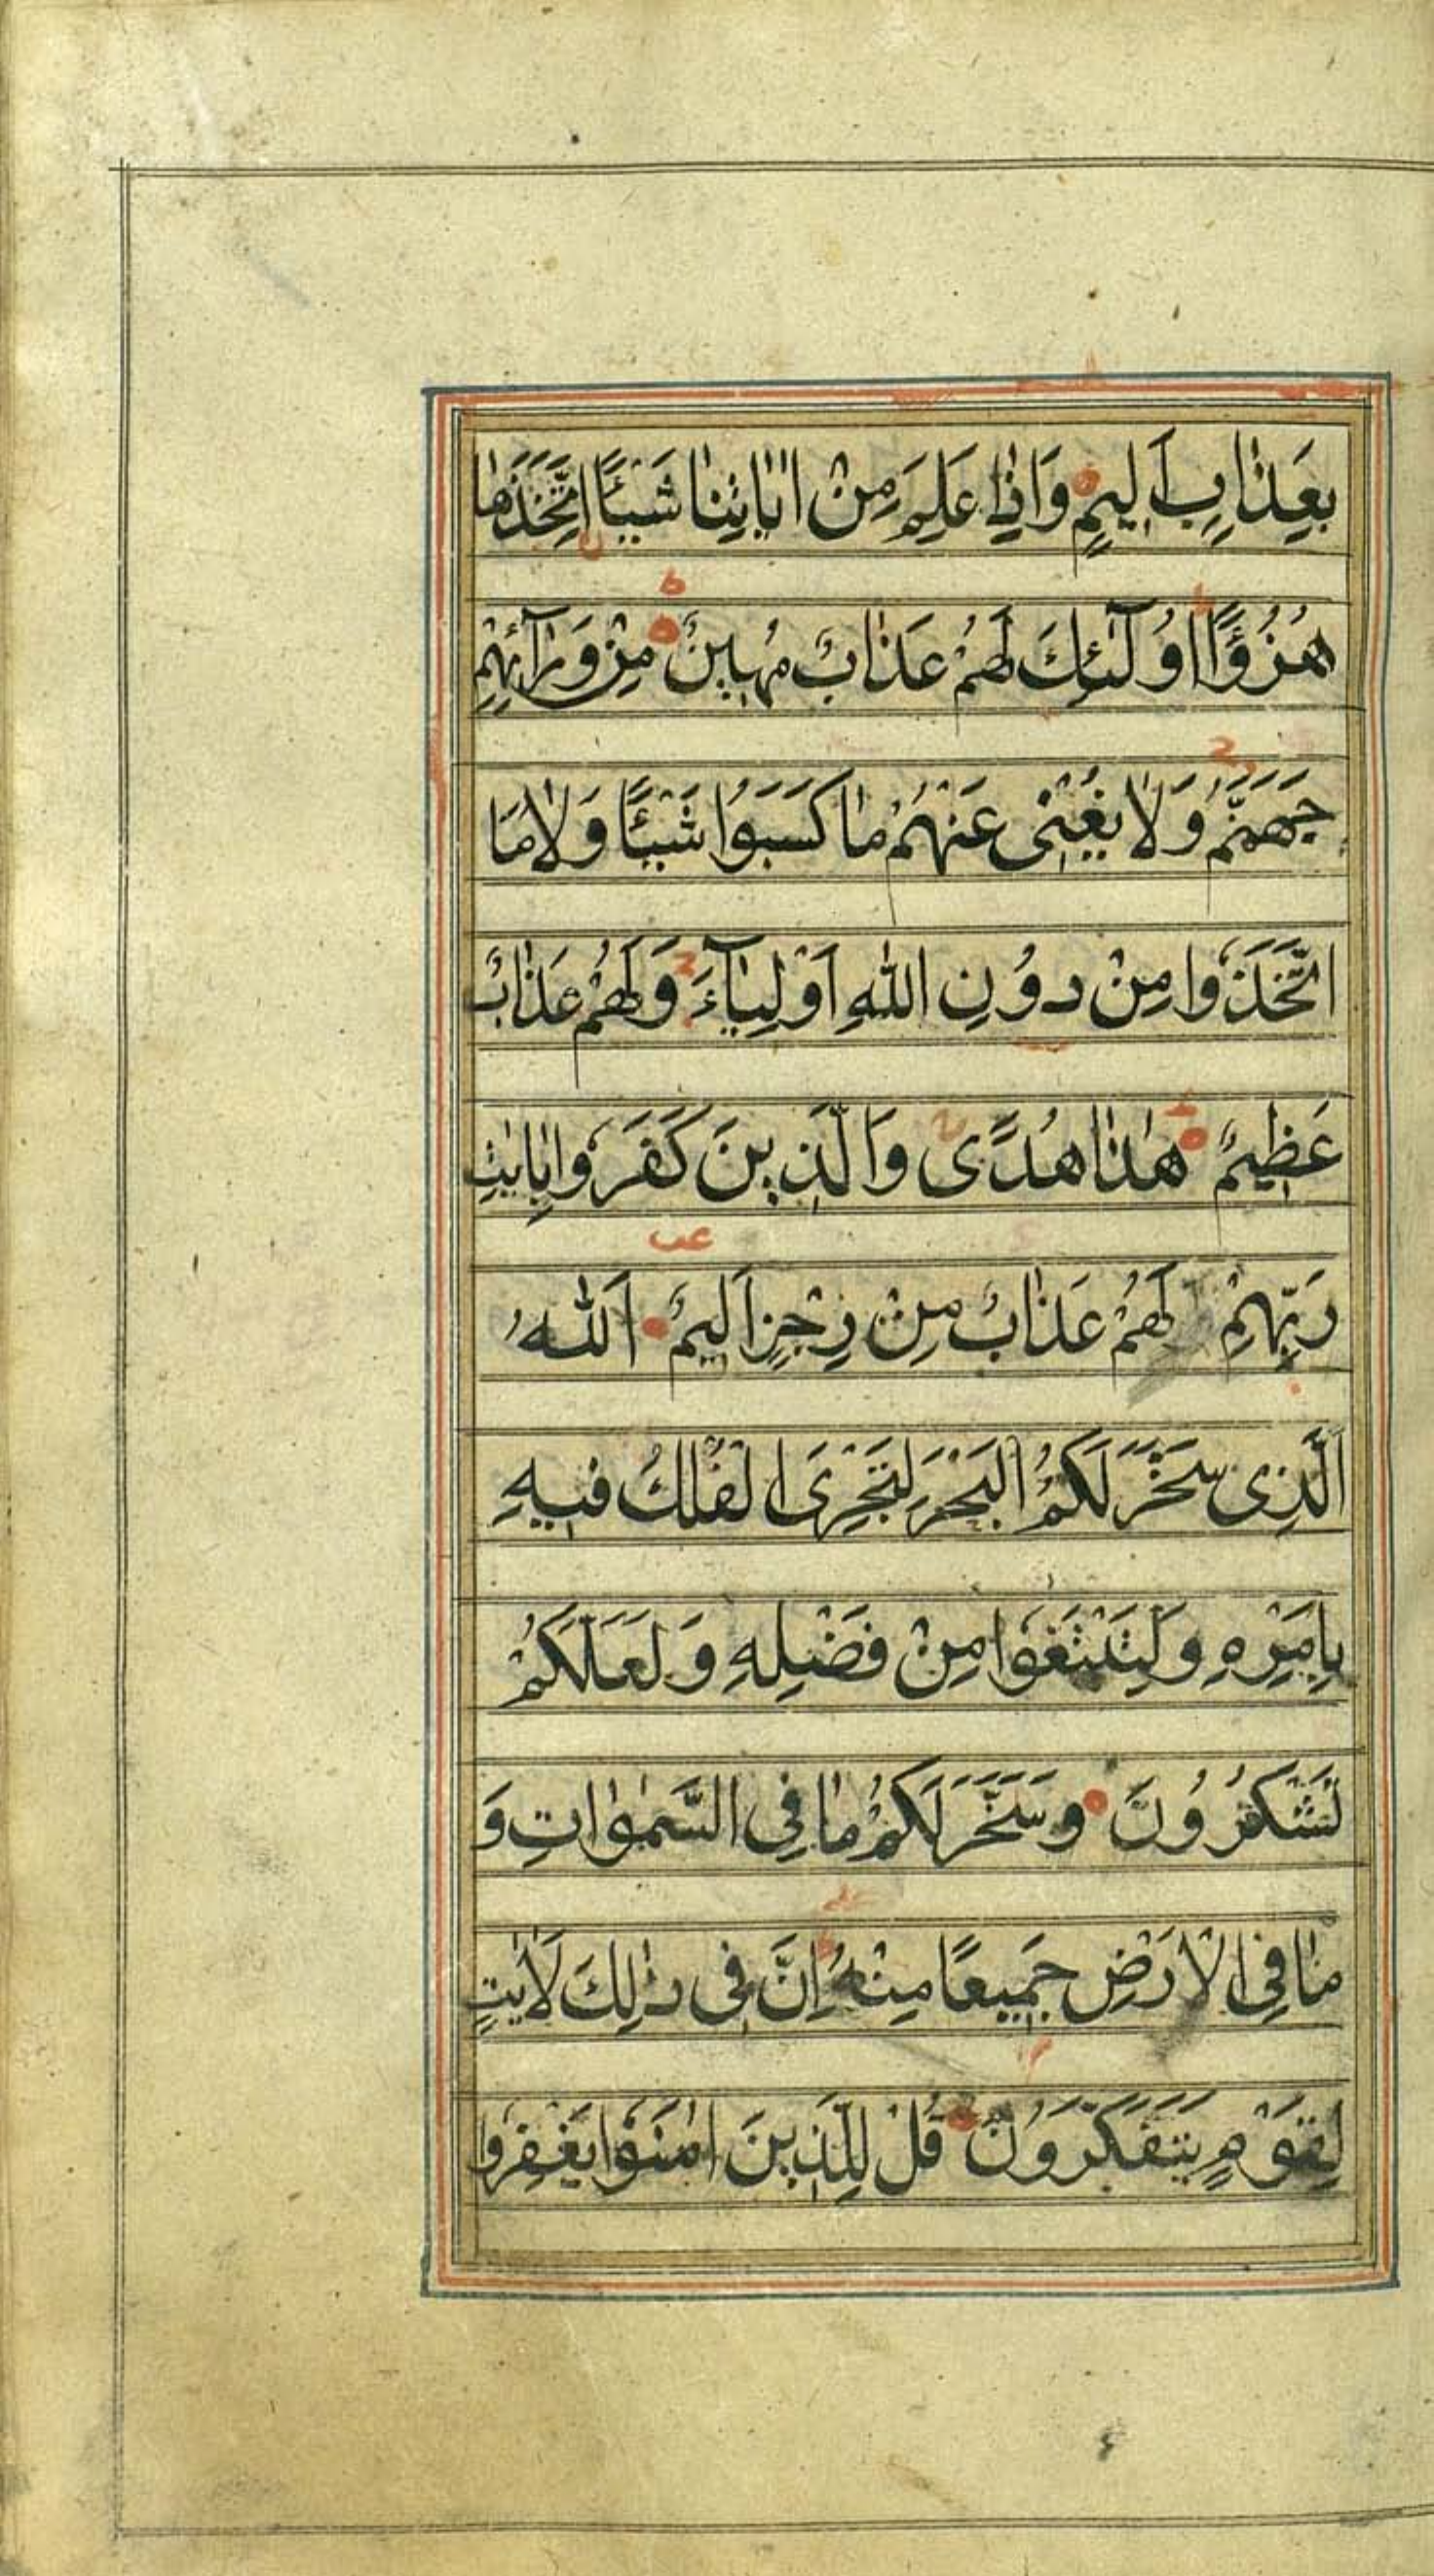 بِعَذٰابٍ اَلِيمٍ وَاِذٰا عَلِمَ مِنْ اٰيٰاتِنٰا شَيْئًا اتَّخَذَهٰا
هُزُؤًا اُولٰٓئِكَ لَهُمْ عَذٰابٌ مُهِينٌ مِنْ وَرٰآئِهِمْ
جَهَنَّمُ وَلٰا يُغْنِى عَنْهُمْ مٰا كَسَبُوا شَيْئًا وَلٰا مَا
اتَّخَذُوا مِنْ دُونِ اللّٰهِ اَوْلِيٰآءَ وَلَهُمْ عَذٰابٌ
عَظِيمٌ هٰذٰا هُدًى وَالَّذِينَ كَفَرُوا بِاٰيٰتِ
رَبِّهِمْ لَهُمْ عَذٰابٌ مِنْ رِجْزٍ اَلِيمٌ اَللّٰهُ
الَّذِى سَخَّرَ لَكُمُ الْبَحْرَ لِتَجْرِىَ الْفُلْكُ فِيهِ
بِاَمْرِهِ وَلِتَبْتَغُوا مِنْ فَضْلِهِ وَلَعَلَّكُمْ
تَشْكُرُونَ وَسَخَّرَ لَكُمْ مٰا فِى السَّمٰوٰاتِ وَ
مٰا فِى الْاَرْضِ جَمِيعًا مِنْهُ اِنَّ فِى ذٰلِكَ لَاٰيٰتٍ
لِقَوْمٍ يَتَفَكَّرُونَ قُلْ لِلَّذِينَ اٰمَنُوا يَغْفِرُوا